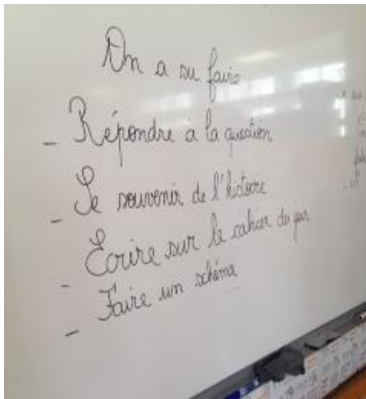 On a su faire
- Répondre à la question
- Se souvenir de l'histoire
- Écrire sur le cahier du jour
- Faire un schéma